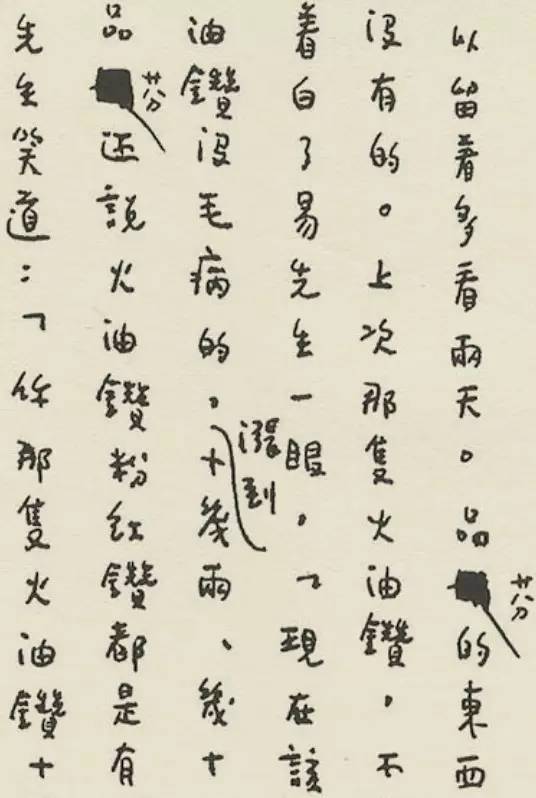 以留着多看兩天。品芬的東西
没有的。上次那隻火油鑽,不
着白了易先生一眼。「現在該
漲到
油鑽没毛病的,十幾兩、幾十
品芬还說火油鑽粉紅鑽都是有
先生笑道:「你那隻火油鑽十